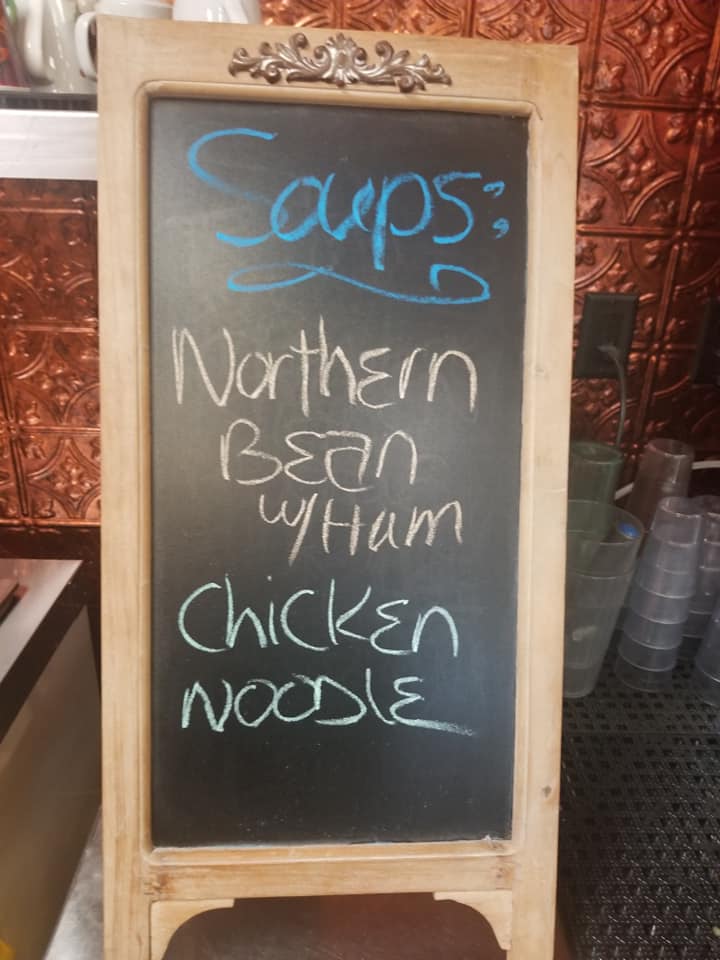 Soups:
Northern
Bean
w/Ham
Chicken
Noodle